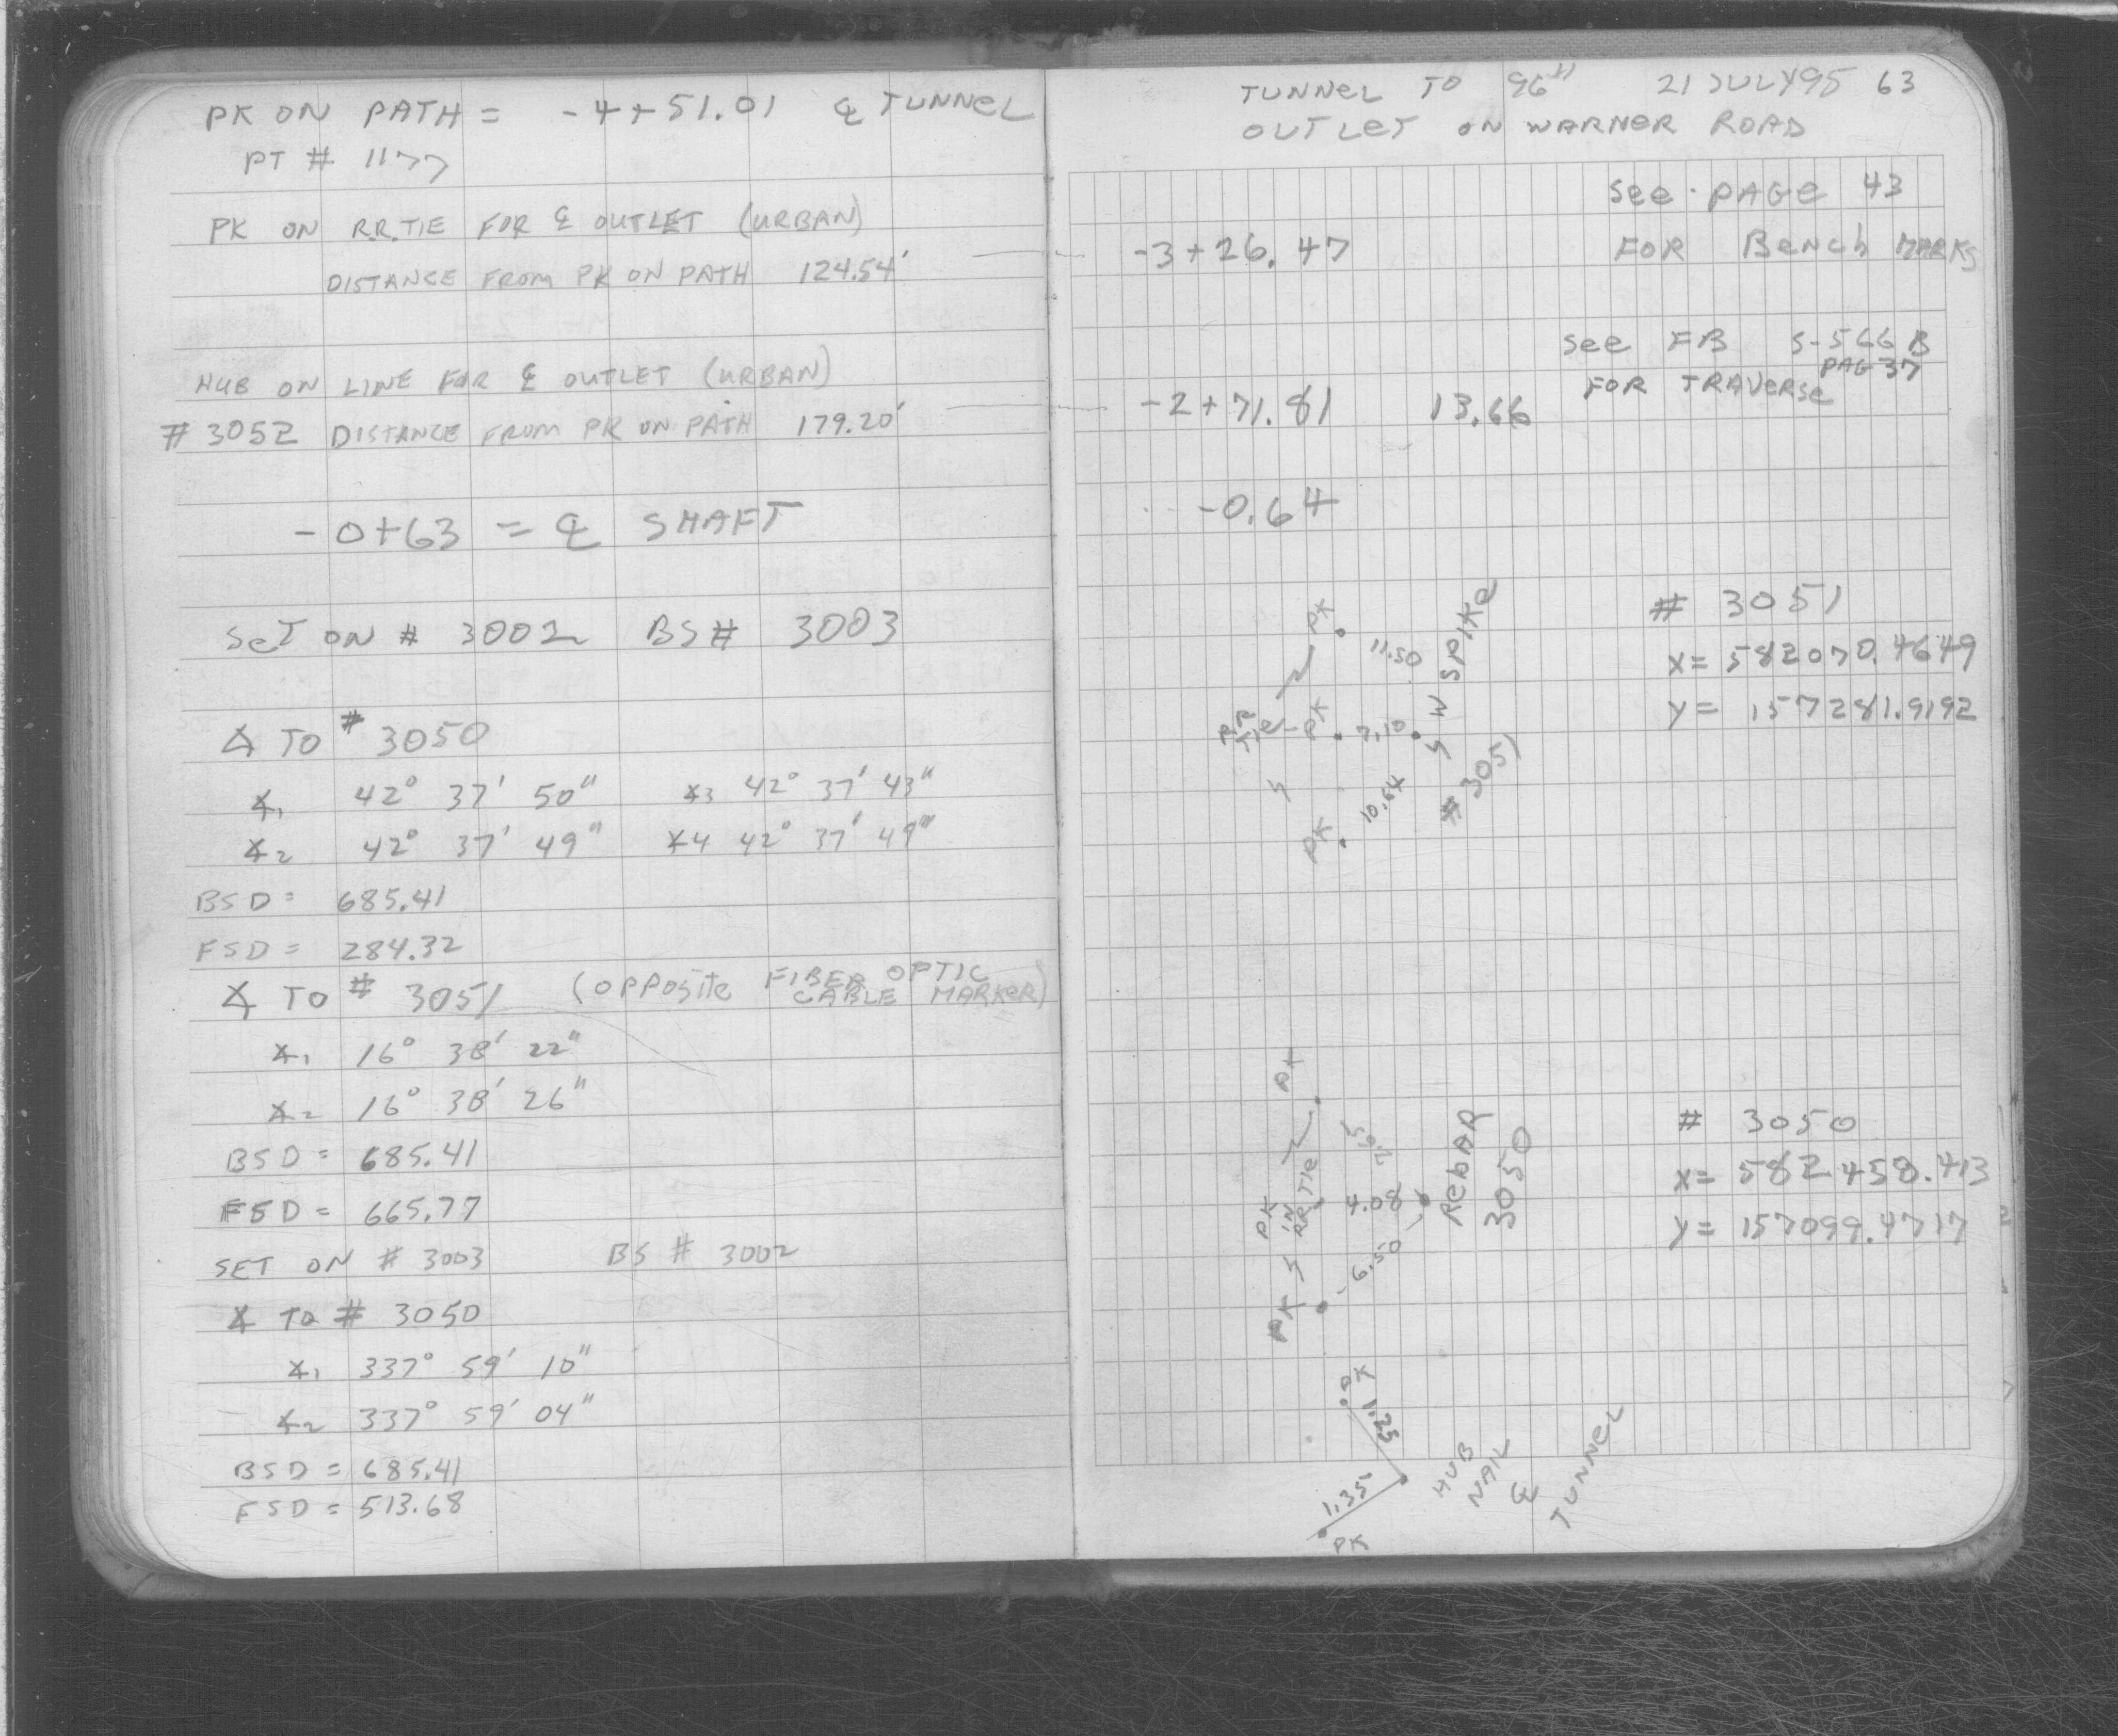 PK ON PATH = -4+51.01 ℄ TUNNEL
PT # 1177
PK ON R.R. TIE FOR ℄ OUTLET (URBAN)
DISTANCE FROM PK ON PATH 124.54'
HUB ON LINE FOR ℄ OUTLET (URBAN)
# 3052 DISTANCE FROM PK ON PATH 179.20'
-0+63 = ℄ SHAFT
SET ON # 3002 BS# 3003
∡ TO # 3050
∡1 42° 37' 50" ∡3 42° 37' 43"
∡2 42° 37' 49" ∡4 42° 37' 49"
BSD = 685.41
FSD = 284.32
∡ TO # 3051 (OPPOSITE FIBER OPTIC
CABLE MARKER)
∡1 16° 38' 22"
∡2 16° 38' 26"
BSD = 685.41
FSD = 665.77
SET ON # 3003 BS # 3002
∡ TO # 3050
∡1 337° 59' 10"
∡2 337° 59' 04"
BSD = 685.41
FSD = 513.68
TUNNEL TO 96" 21 JULY 95 63
OUTLET ON WARNER ROAD
See PAGE 43
-3+26.47 FOR Bench MARKS
See FB S-566B
PAG 37
FOR TRAVERSE
-2+71.81 13.66
-0.64
PK
11.50
SPIKE
# 3051
X= 582070.4649
Y= 157281.9192
RR
TIE PK 7.10
# 3051
PK 10.64
PK
4.08
PK
IN
RR TIE
REBAR
3050
# 3050
X= 582458.413
Y= 157099.4717
6.50
PK
PK
1.25
HUB
NAIL
℄
TUNNEL
1.35
PK